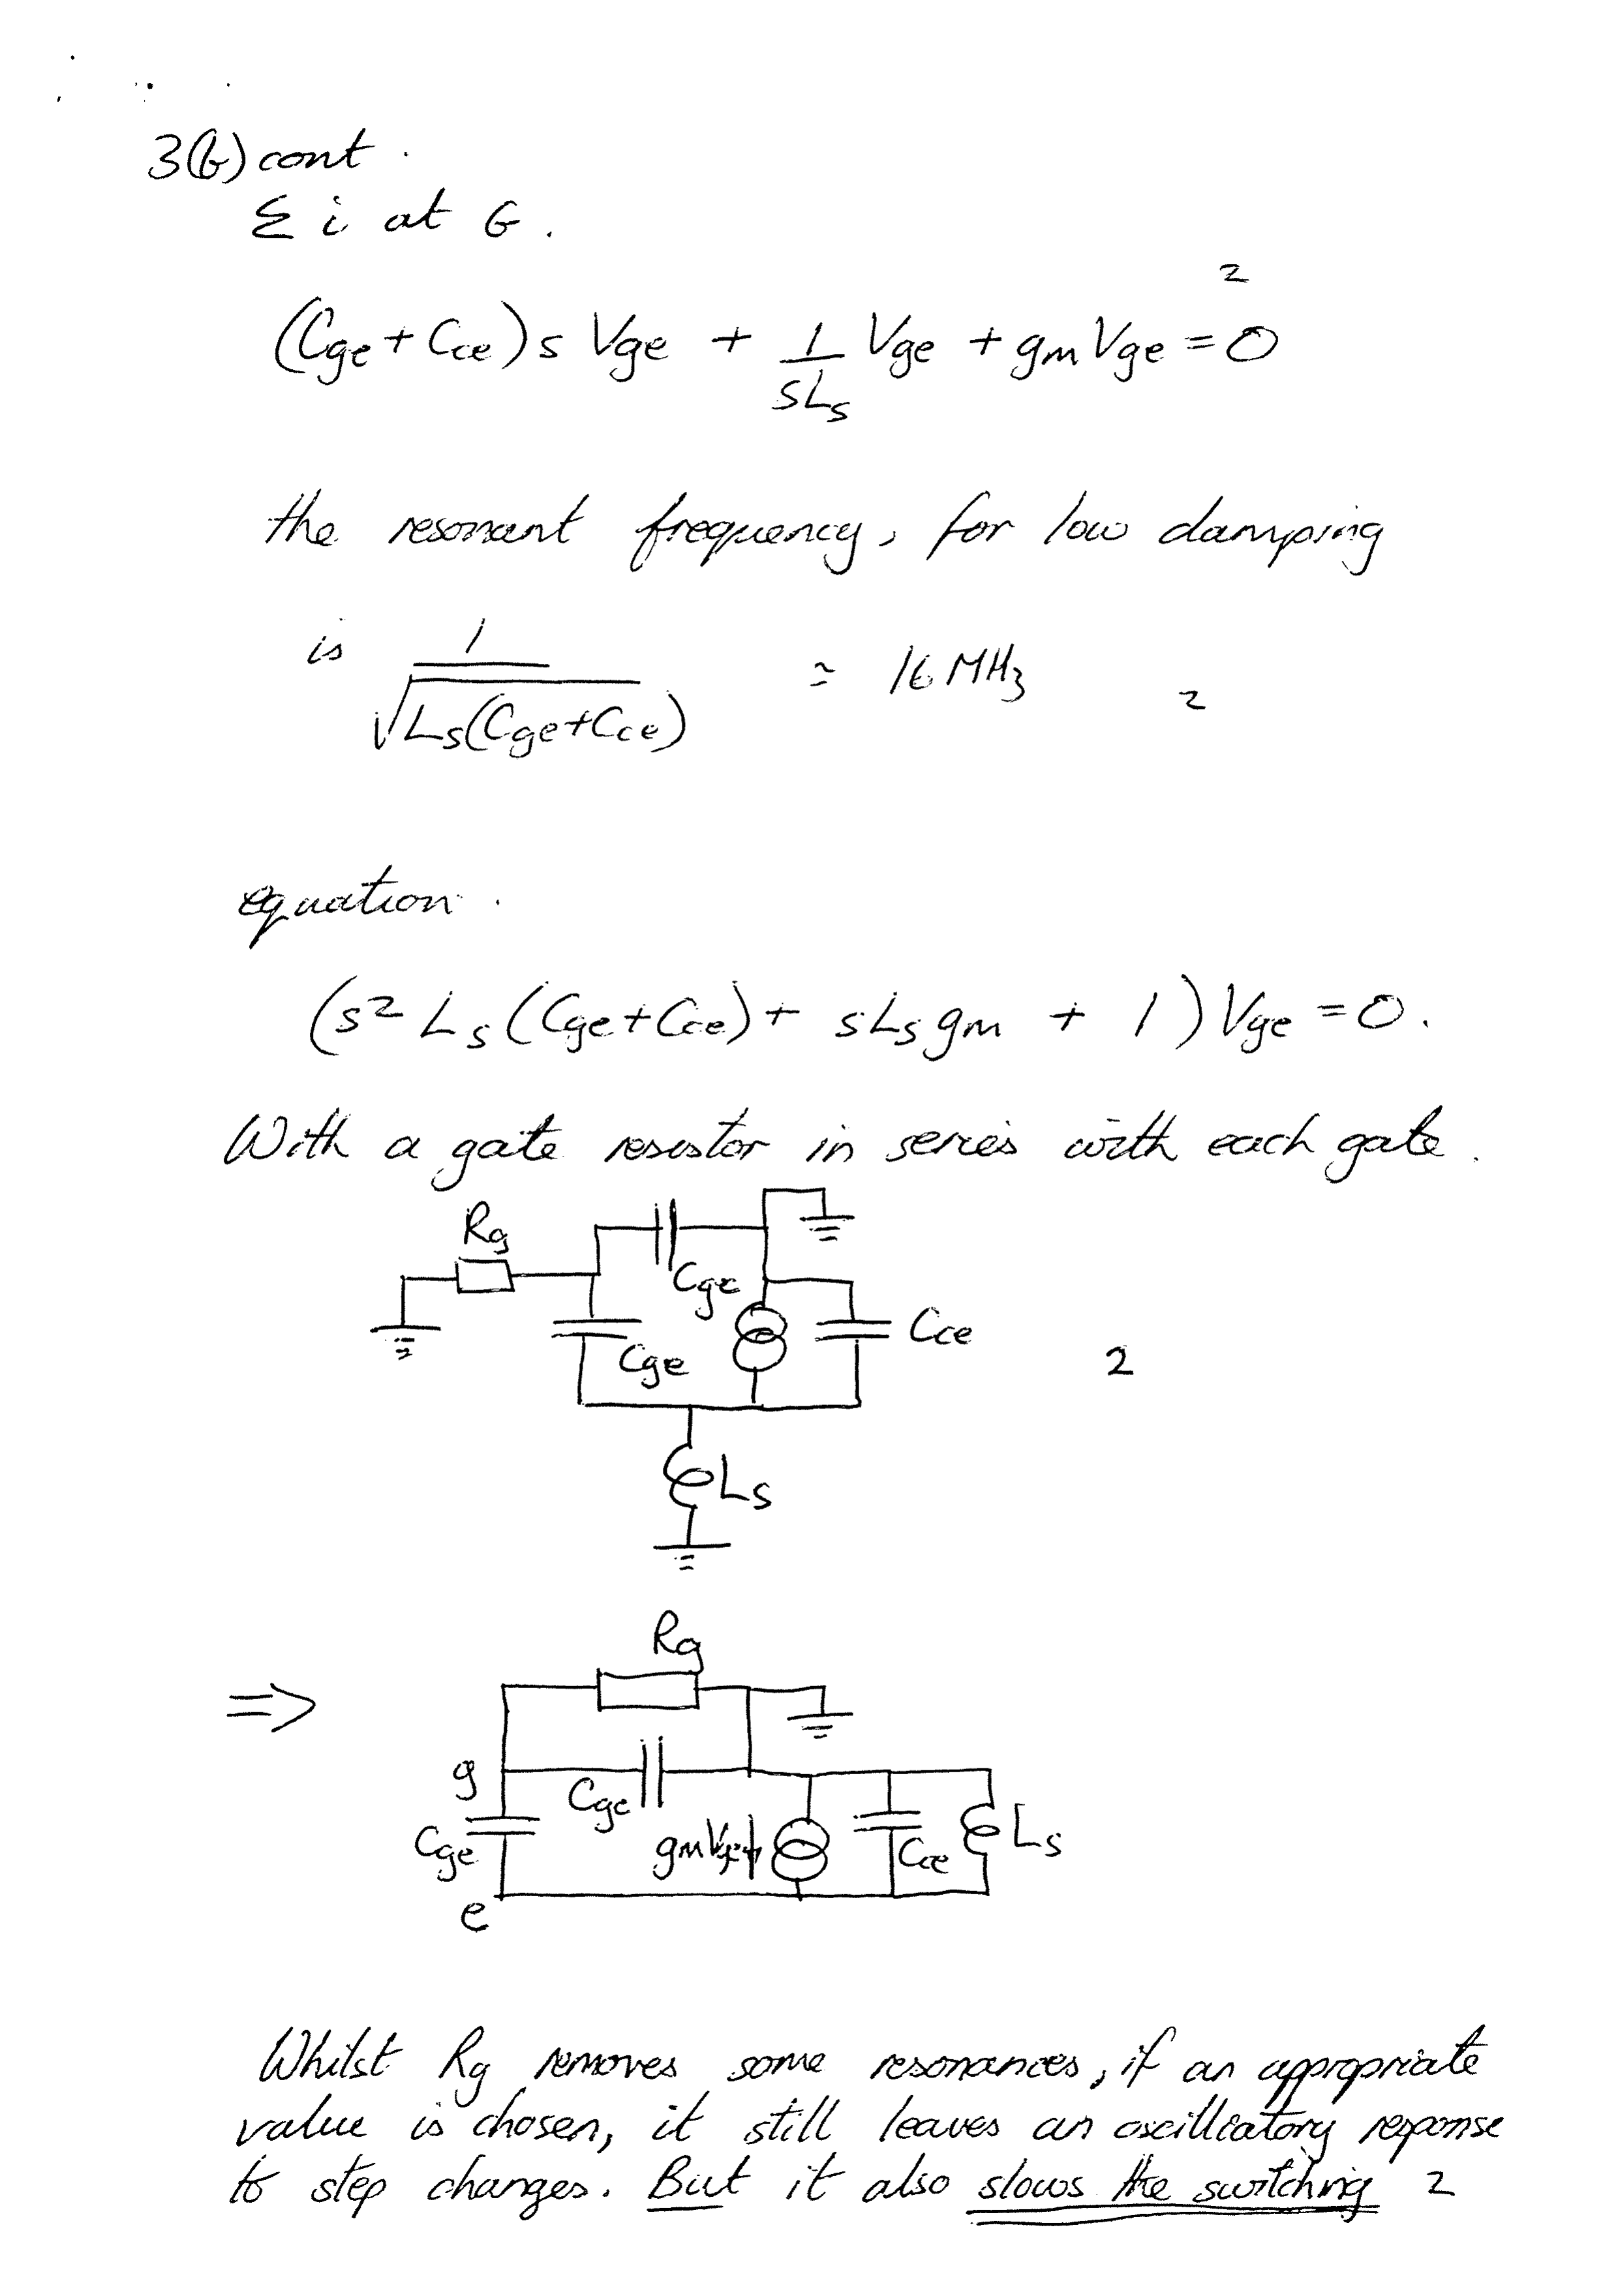 3(b) cont.
Σ i at G.
2
(Cge + Cce) s Vge + 1/sLs Vge + gm Vge = 0
the resonant frequency, for low damping
is 1/√Ls(Cge+Cce) ≃ 16 MHz 2
equation.
(s² Ls (Cge + Cce) + sLs gm + 1) Vge = 0.
With a gate resistor in series with each gate.
Rg
Cgc
Cge
Cce
2
Ls
⇒
Rg
g
Cgc
Cge
gmVge
Cce
Ls
e
Whilst Rg removes some resonances, if an appropriate
value is chosen, it still leaves an oscilliatory response
to step changes. But it also slows the switching 2